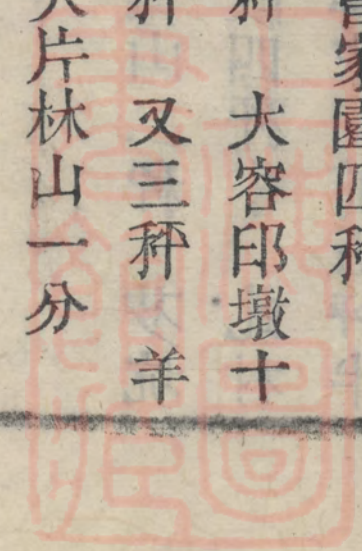 家園四秤
秤　大容印墩十
秤　又三秤　羊
片林山一分